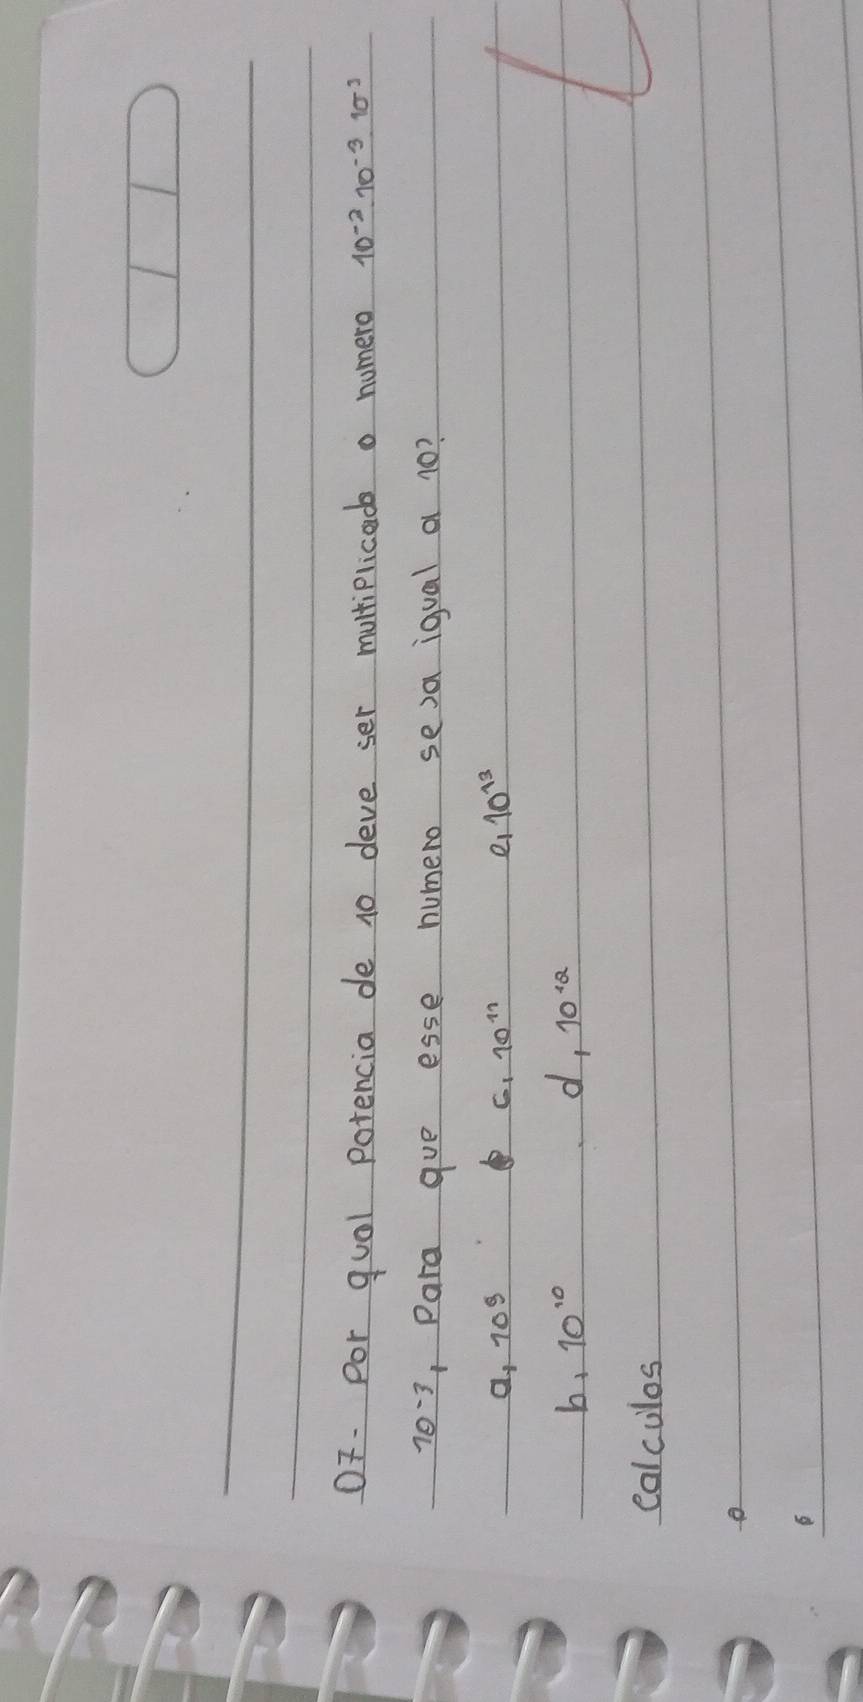 07- Por qual Potencia de 10 deve ser multiplicado o numero 10⁻² 10⁻³ 10³
10⁻³, Para que esse numero seja igual a 10?
a, 10⁹ c, 10¹¹ e, 10¹³
b, 10¹⁰ d, 10¹²
Calculos